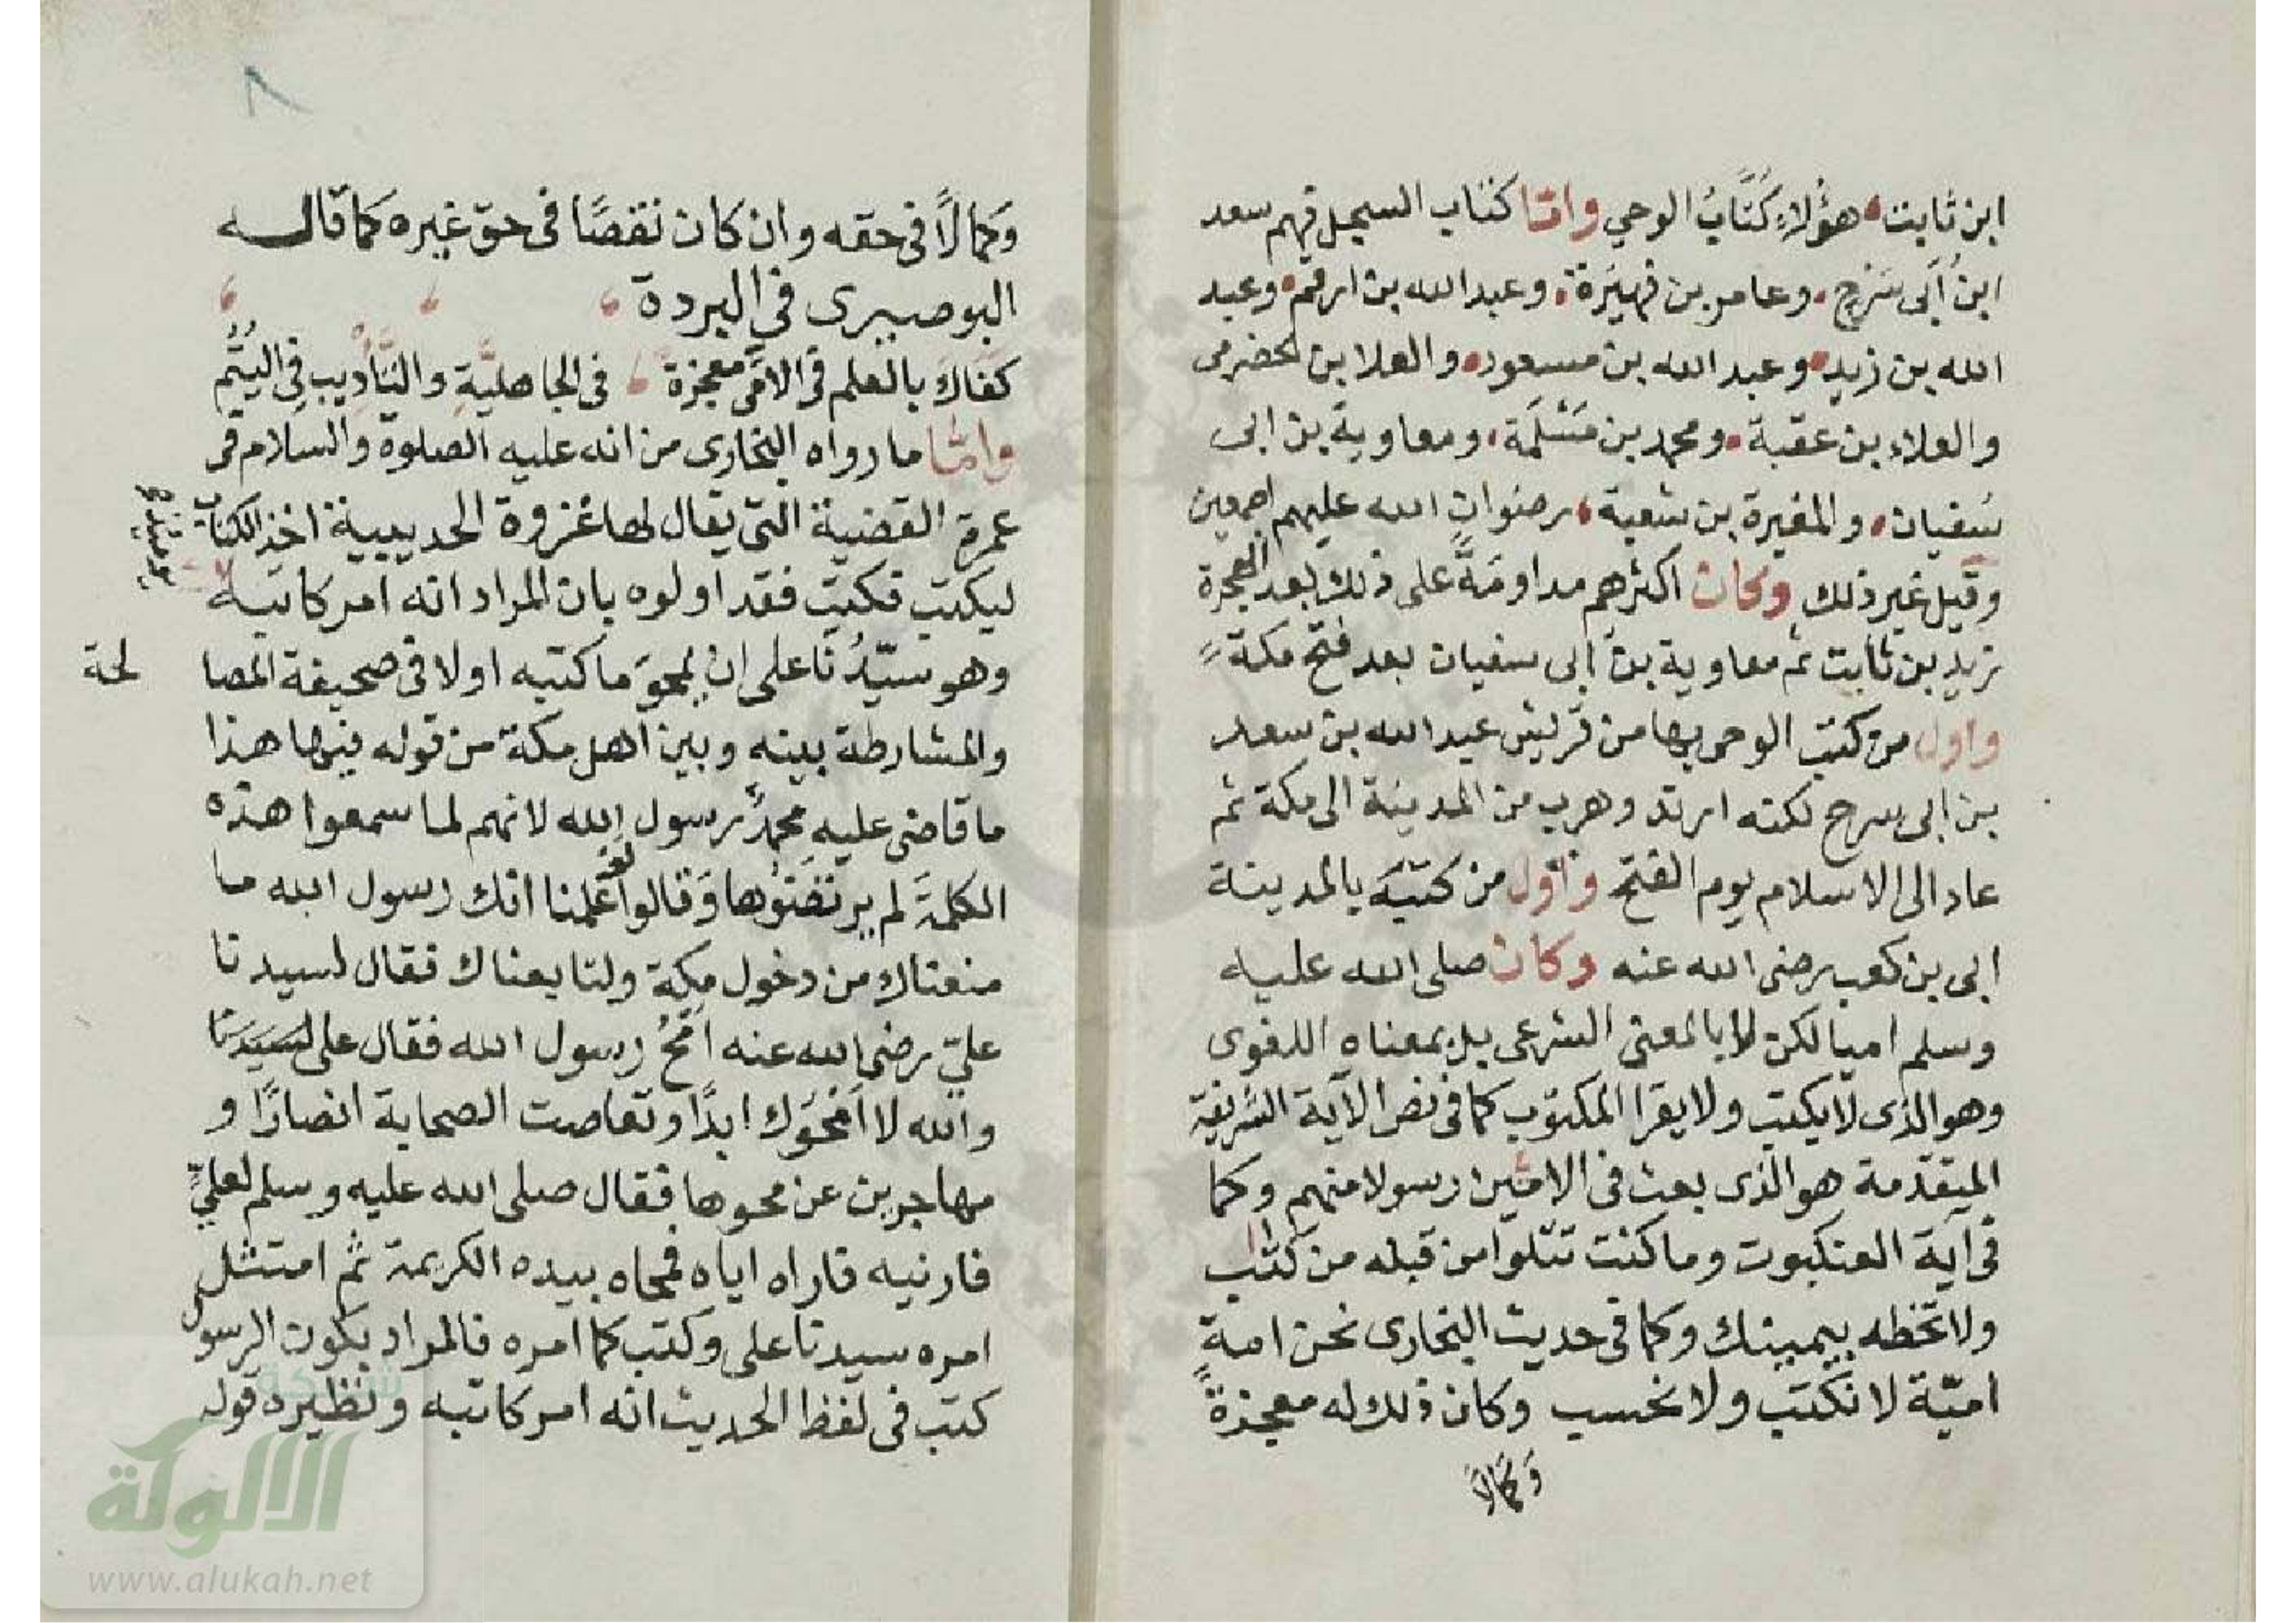 ابن ثابت هؤلاءِ كُتَّابُ الوحي واما كتاب السجل فهم سعد
ابنُ أبى سَرْح وعامر بن فهيَرة وعبد الله بن ارقم وعبد
الله بن زيد وعبد الله بن مسعود والعلا بن الحضرمى
والعلاء بن عقبة ومحمد بن مَسْلَمَة ومعاوية بن ابى
سُفيان والمغيرة بن شعبة رضوان الله عليهم اجمعين
وقيل غير ذلك وكان اكثرهم مداومَةً على ذلك بعد الهجرة
زيد بن ثابت ثم معاوية بن ابى سفيان بعد فتح مكة
واول من كتب الوحى بها من قريش عبد الله بن سعد
بن ابى سرح لكنه ارتد وهرب من المدينة الى مكة ثم
عاد الى الاسلام يوم الفتح واول من كتبَه بالمدينة
ابى بن كعب رضى الله عنه وكان صلى الله عليه
وسلم اميا لكن لا بالمعنى الشرعى بل بمعناه اللغوى
وهو الذى لا يكتب ولا يقرا المكتوب كما فى نص الآية الشريفة
المتقدمة هو الذى بعث فى الاميّن رسولا منهم وكما
فى آية العنكبوت وما كنت تتلوا من قبله من كتاب
ولا تخطه بيمينك وكما فى حديث البخارى نحن امة
اميّة لا نكتب ولا نحسب وكان ذلك له معجزةً
وَكمَالاً
٨
وَكمالاً فى حقه وان كان نقصًا فى حق غيره كما قال
البوصيرى فى البردة
كفاك بالعلم فى الأمّى معجزة فى الجاهليَّةِ والتَّأْدِيبِ فِى اليُتُم
واما ما رواه البخارى من انه عليه الصلوة والسلام فى
عمرة القضية التى يقال لها غزوة الحديبية اخذ الكتاب
ليكتب فكتب فقد اولوه بان المراد انه امر كاتبه
وهو سيّدُنا على ان يمحوَ ما كتبه اولا فى صحيفة المصا
لحة
والمشارطة بينه وبين اهل مكة من قوله فيها هذا
ما قاضى عليه محمدٌ رسول الله لانهم لما سمعوا هذه
الكلمةَ لم يرتضوها وَقالوا لو عَلمنا انك رسول الله ما
منعناك من دخول مكة ولتابعناك فقال لسيدنا
علىّ رضى الله عنه امْحُ رسول الله فقال على لسَيدنَا
والله لا اَمْحُوك ابدًا وتعاصت الصحابة انصارًا و
مهاجرين عن محوها فقال صلى الله عليه وسلم لعلىٍّ
فارنيه فاراه اياه فمحاه بيده الكريمة ثم امتثل
امره سيدنا على وكتب كما امره فالمراد بكون الرسول
كتب فى لفظ الحديث انه امر كاتبه ونظيره قوله
شبكة
الألوكة
www.alukah.net